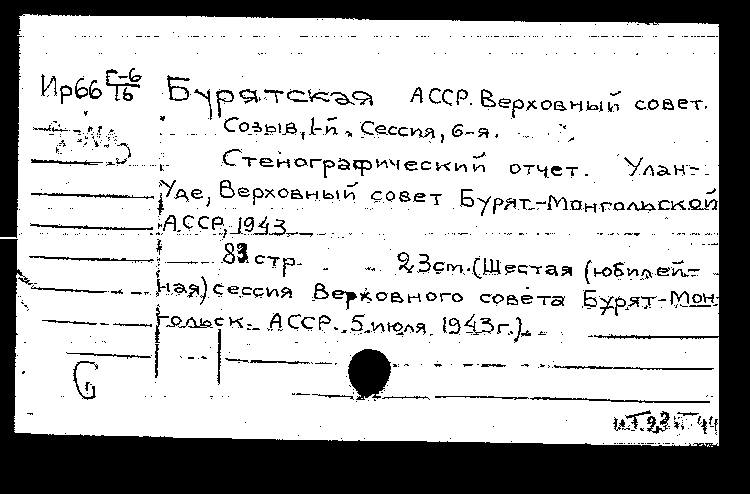 Ир66 Г-6/16 Бурятская АССР. Верховный совет.
Созыв, 1-й. Сессия, 6-я.
Стенографический отчет. Улан-
Уде, Верховный совет Бурят-Монгольской
АССР, 1943
83 стр. 23 cm. (Шестая (юбилей-
ная) сессия Верховного совета Бурят-Мон-
гольск. АССР. 5 июля 1943 г.).